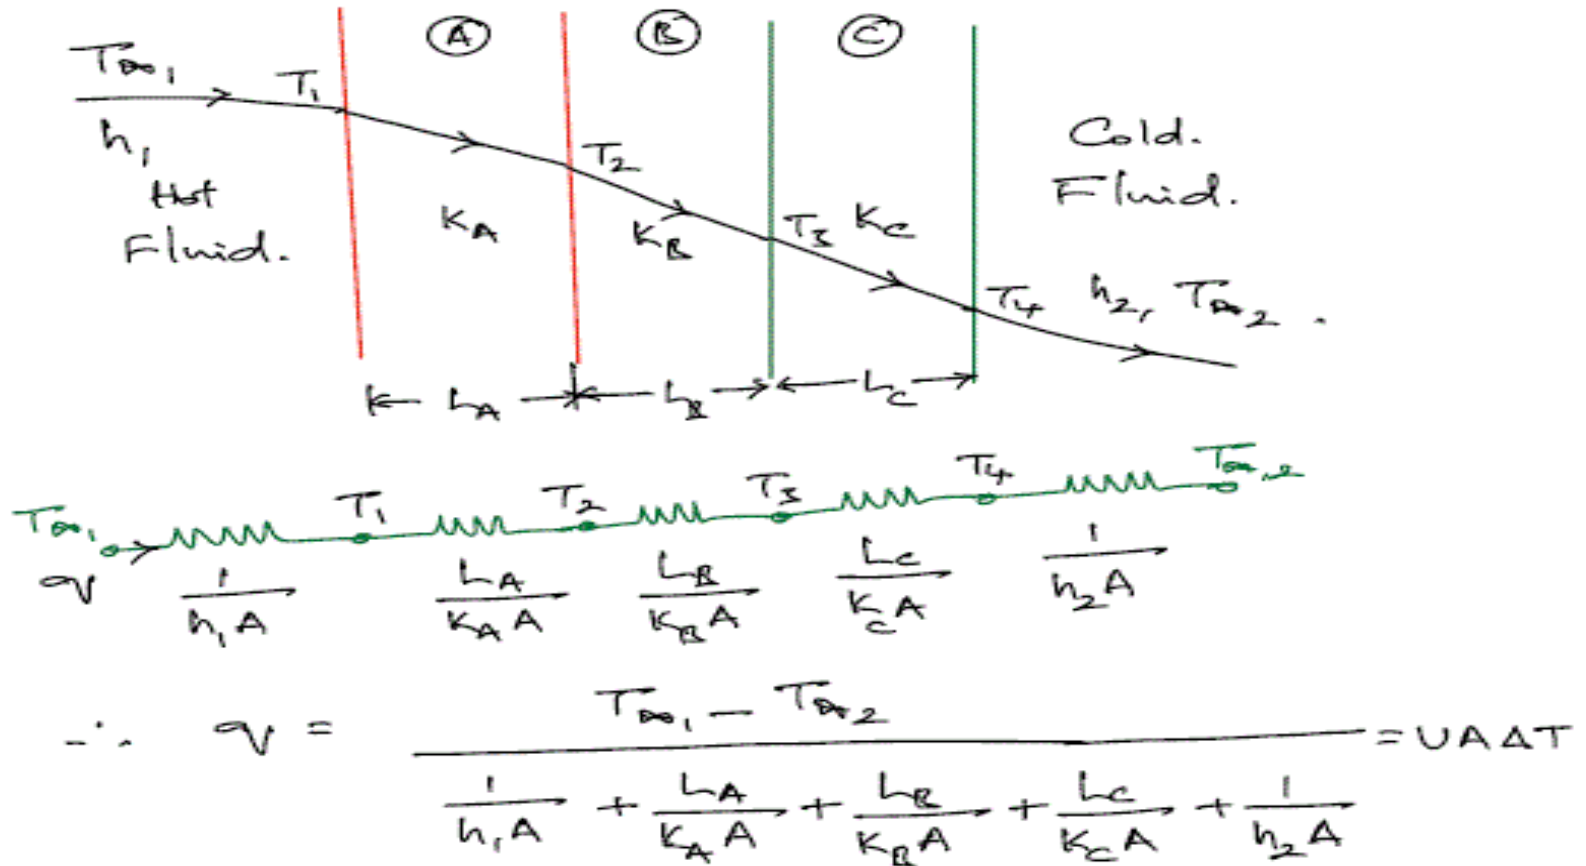 A B C
T∞1 T1
h1
Hot
Fluid.
T2
KA KB T3 KC
Cold.
Fluid.
T4 h2, T∞2 .
LA LB LC
T∞1 T1 T2 T3 T4 T∞,2
q 1/h1A LA/KAA LB/KBA LC/KCA 1/h2A
∴ q = T∞1 - T∞2 / 1/h1A + LA/KAA + LB/KBA + LC/KCA + 1/h2A = UAΔT